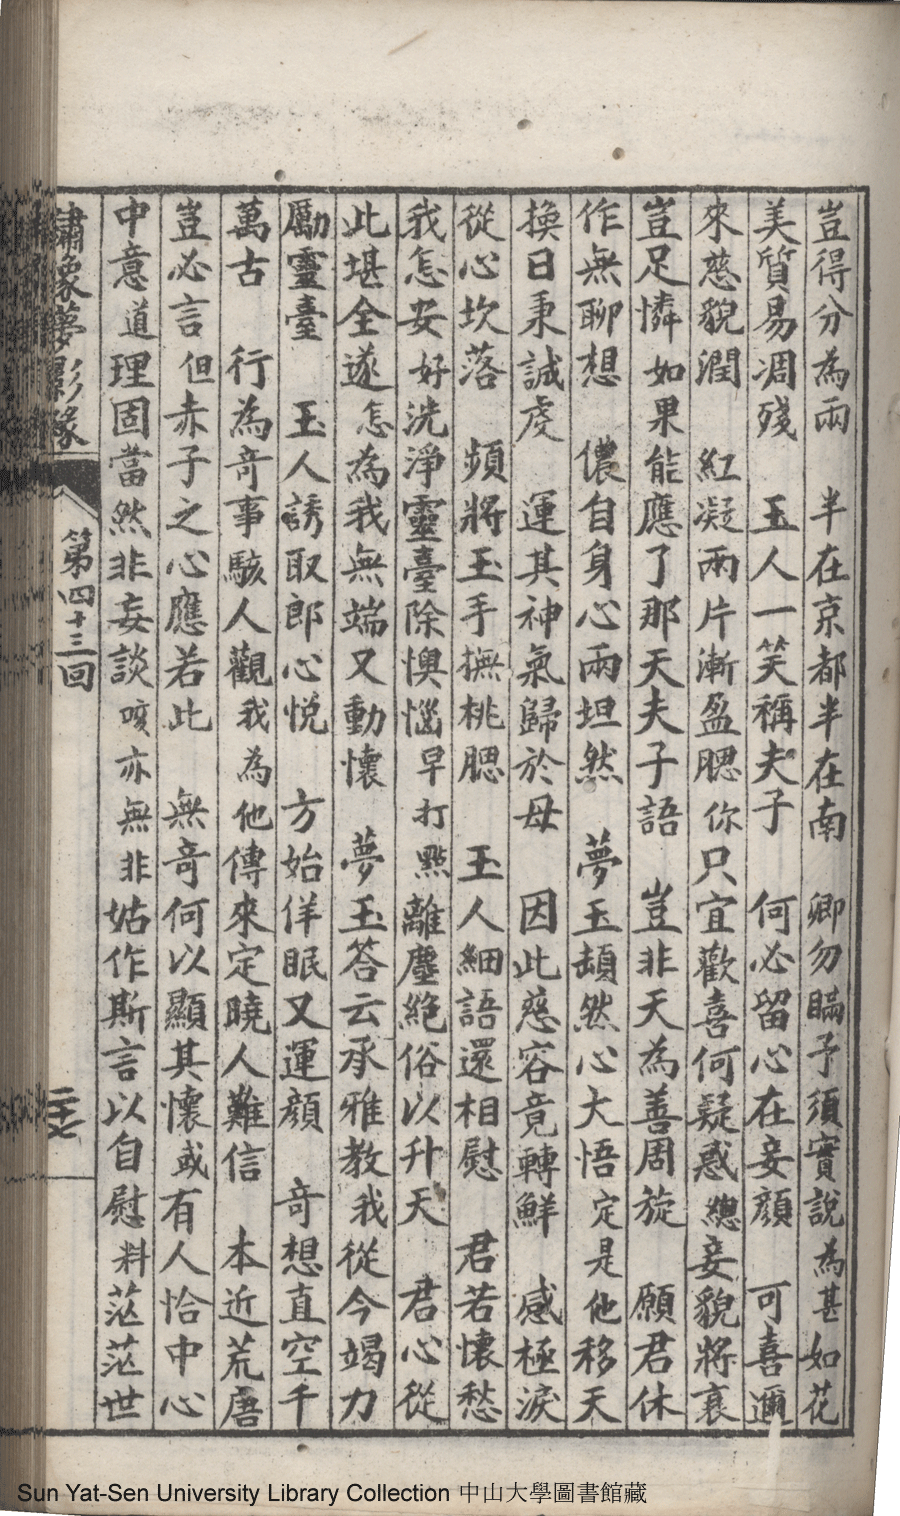 豈得分為兩　半在京都半在南　卿勿瞞予須實說為甚如花
美質易凋殘　玉人一笑稱夫子　何必留心在妾顏　可喜邇
來慈貌潤　紅凝兩片漸盈腮你只宜歡喜何疑惑總妾貌將衰
豈足憐如果能應了那天夫子語　豈非天為善周旋　願君休
作無聊想　儂自身心兩坦然　夢玉頓然心大悟定是他移天
換日秉誠虔　運其神氣歸於母　因此慈容竟轉鮮　感極淚
從心坎落　頻將玉手撫桃腮　玉人細語還相慰　君若懷愁
我怎安好洗淨靈臺除懊惱早打點離塵絕俗以升天　君心從
此堪全遂怎為我無端又動懷　夢玉答云承雅教我從今竭力
勵靈臺　玉人誘取郎心悅　方始佯眠又運顏　奇想直空千
萬古　行為奇事駭人觀我為他傳來定曉人難信　本近荒唐
豈必言但赤子之心應若此　無奇何以顯其懷或有人恰中心
中意道理固當然非妄談咳亦無非姑作斯言以自慰料茫茫世
繡像夢影緣　第四十三回　二十七
Sun Yat-Sen University Library Collection 中山大學圖書館藏